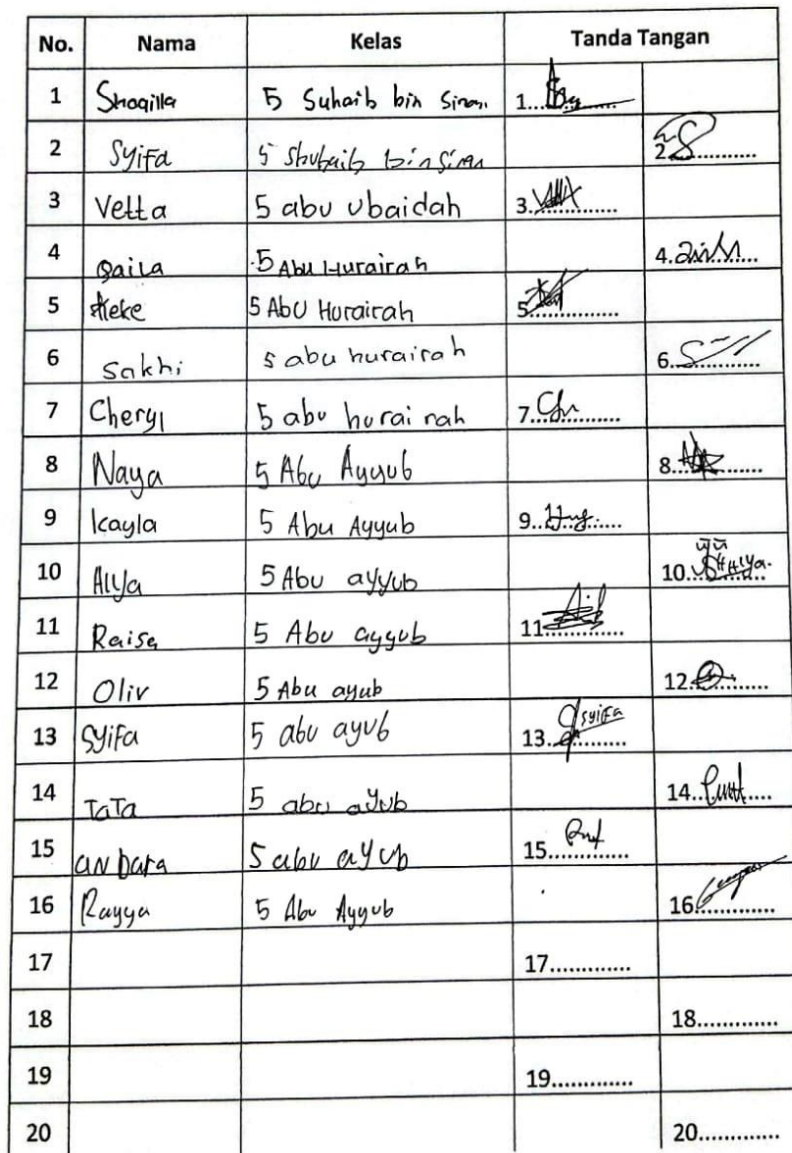 No. Nama Kelas Tanda Tangan
1 Shaqilla 5 Suhaib bin Sinan 1..............
2 Syifa 5 Shuhaib bin Sinan 2..............
3 Vetta 5 abu ubaidah 3..............
4 Qaila 5 Abu Hurairah 4..............
5 Keke 5 Abu Hurairah 5..............
6 Sakhi 5 abu hurairah 6..............
7 Cheryl 5 abu hurai rah 7..............
8 Naya 5 Abu Ayyub 8..............
9 kayla 5 Abu Ayyub 9..............
10 Alya 5 Abu ayyub 10..............
11 Raisa 5 Abu ayyub 11..............
12 Oliv 5 Abu ayub 12..............
13 Syifa 5 abu ayub 13.............. syifa
14 TaTa 5 abu ayub 14..............
15 anbara 5 abu ayub 15..............
16 Rayya 5 Abu Ayyub 16..............
17 17..............
18 18..............
19 19..............
20 20..............